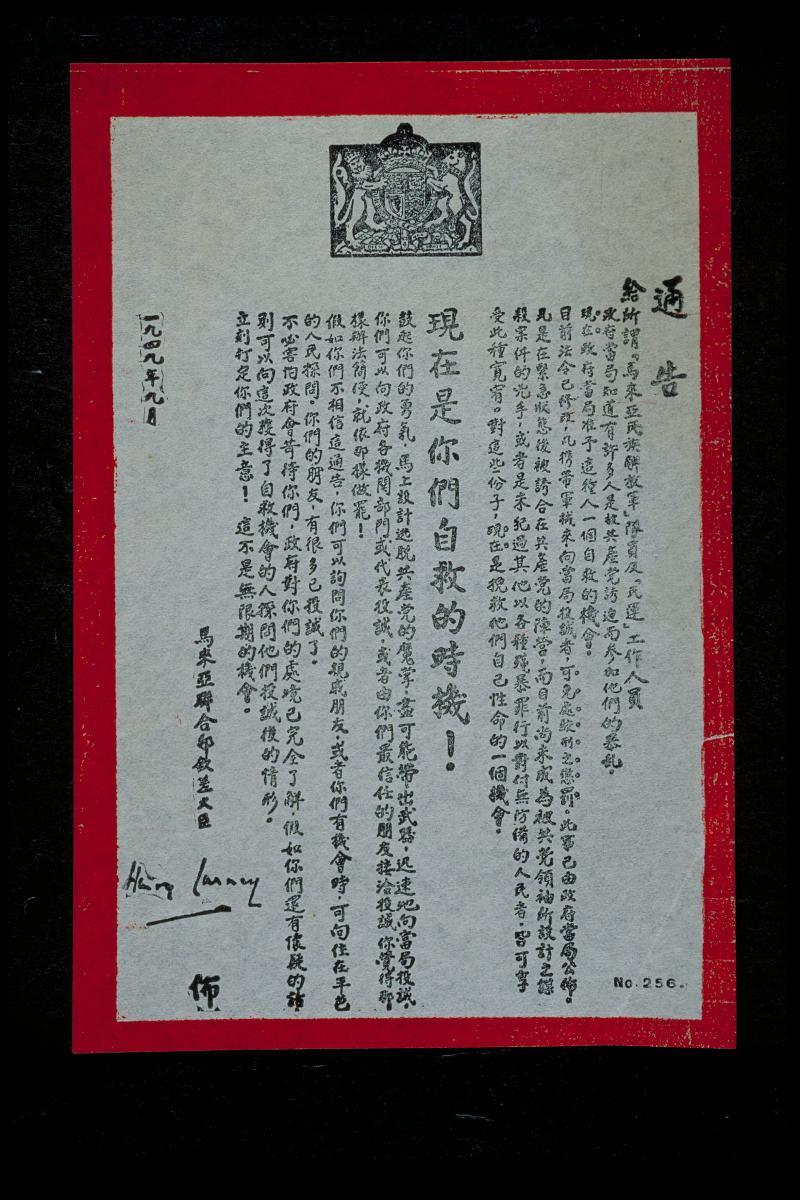 通告
給所謂「馬來亞民族解放軍」隊員及「民運」工作人員
政府當局知道有許多人是被共產党誘迫而參加他們的暴乱,
現在政府當局准予這種人一個自救的機會。
目前法令已修改,凡携帶軍械來向當局投誠者,可免處死刑之懲罰。此事已由政府當局公佈。
凡是在緊急狀態後被誘合在共產党的陣營,而目前尚未成為被共党領袖所設計之謀
殺案件的兇手,或者是未犯過其他以各種殘暴罪行以對付無防備的人民者,皆可享
受此種寬宥。對這些份子,現在是挽救他們自己性命的一個機會。
現在是你們自救的時機!
鼓起你們的勇氣,馬上設計逃脱共產党的魔掌,盡可能帶出武器,迅速地向當局投誠,
你們可以向政府各機関部門或代表投誠,或者由你們最信任的朋友接洽投誠你覺得那
樣辦法簡便,就依那樣做罷!
假如你們不相信這通告,你們可以詢問你們的親戚朋友,或者你們有機會時,可向住在平芭
的人民探問。你們的朋友,有很多已投誠了。
不必害怕政府會苛待你們,政府對你們的處境已完全了解,假如你們還有懷疑的話,
則可以向這次獲得了自救機會的人探問他們投誠後的情形。
立刻打定你們的主意!這不是無限期的機會。
馬來亞聯合邦欽差大臣
佈
一九四九年九月
No. 256.